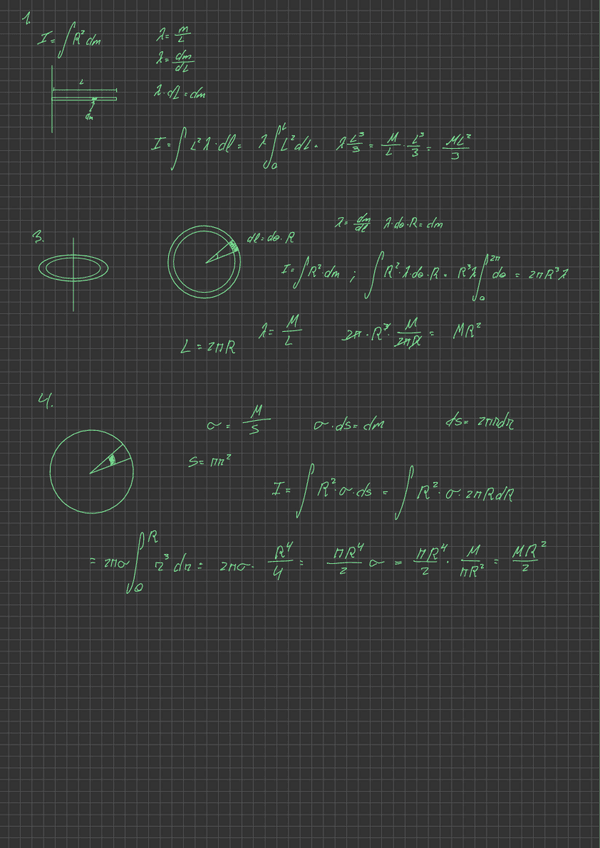 1.
I = ∫ R² dm
λ = m/L
λ = dm/dL
λ · dL = dm
L
dm
I = ∫ L² λ · dl = λ ∫₀ᴸ L² dL = λ L³/3 = M/L · L³/3 = ML²/3
3.
λ = dm/dl λ · dθ · R = dm
dl = dθ · R
I = ∫ R² · dm ; ∫ R² · λ dθ · R = R³ λ ∫₀^2π dθ = 2πR³λ
L = 2πR λ = M/L 2π · R³ · M/2πR = MR²
4.
σ = M/S σ · ds = dm ds = 2πrdr
S = πr²
I = ∫ R² · σ · ds = ∫ R² · σ · 2πRdR
= 2πσ ∫₀ᴿ r³ dr = 2πσ · R⁴/4 = πR⁴/2 σ = πR⁴/2 · M/πR² = MR²/2